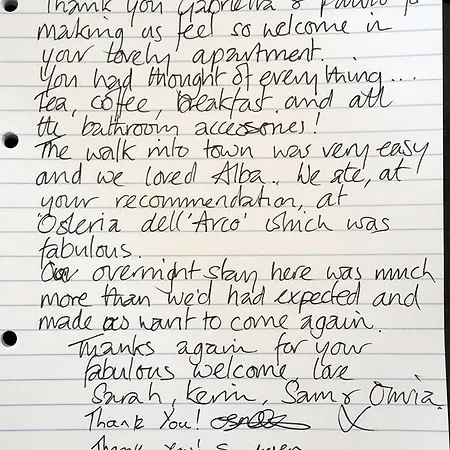 Thank you Gabriella & for
making us feel so welcome in
your lovely apartment.
You had thought of everything...
Tea, coffee, breakfast and all
the bathroom accessories!
The walk into town was very easy
and we loved Alba.. We ate, at
your recommendation, at
"Osteria dell'Arco' which was
fabulous.
Our overnight stay here was much
more than we'd had expected and
made us want to come again.
Thanks again for your
fabulous welcome, love
Sarah, Kevin, Sam & Olivia.
Thank You! X
Thank You!